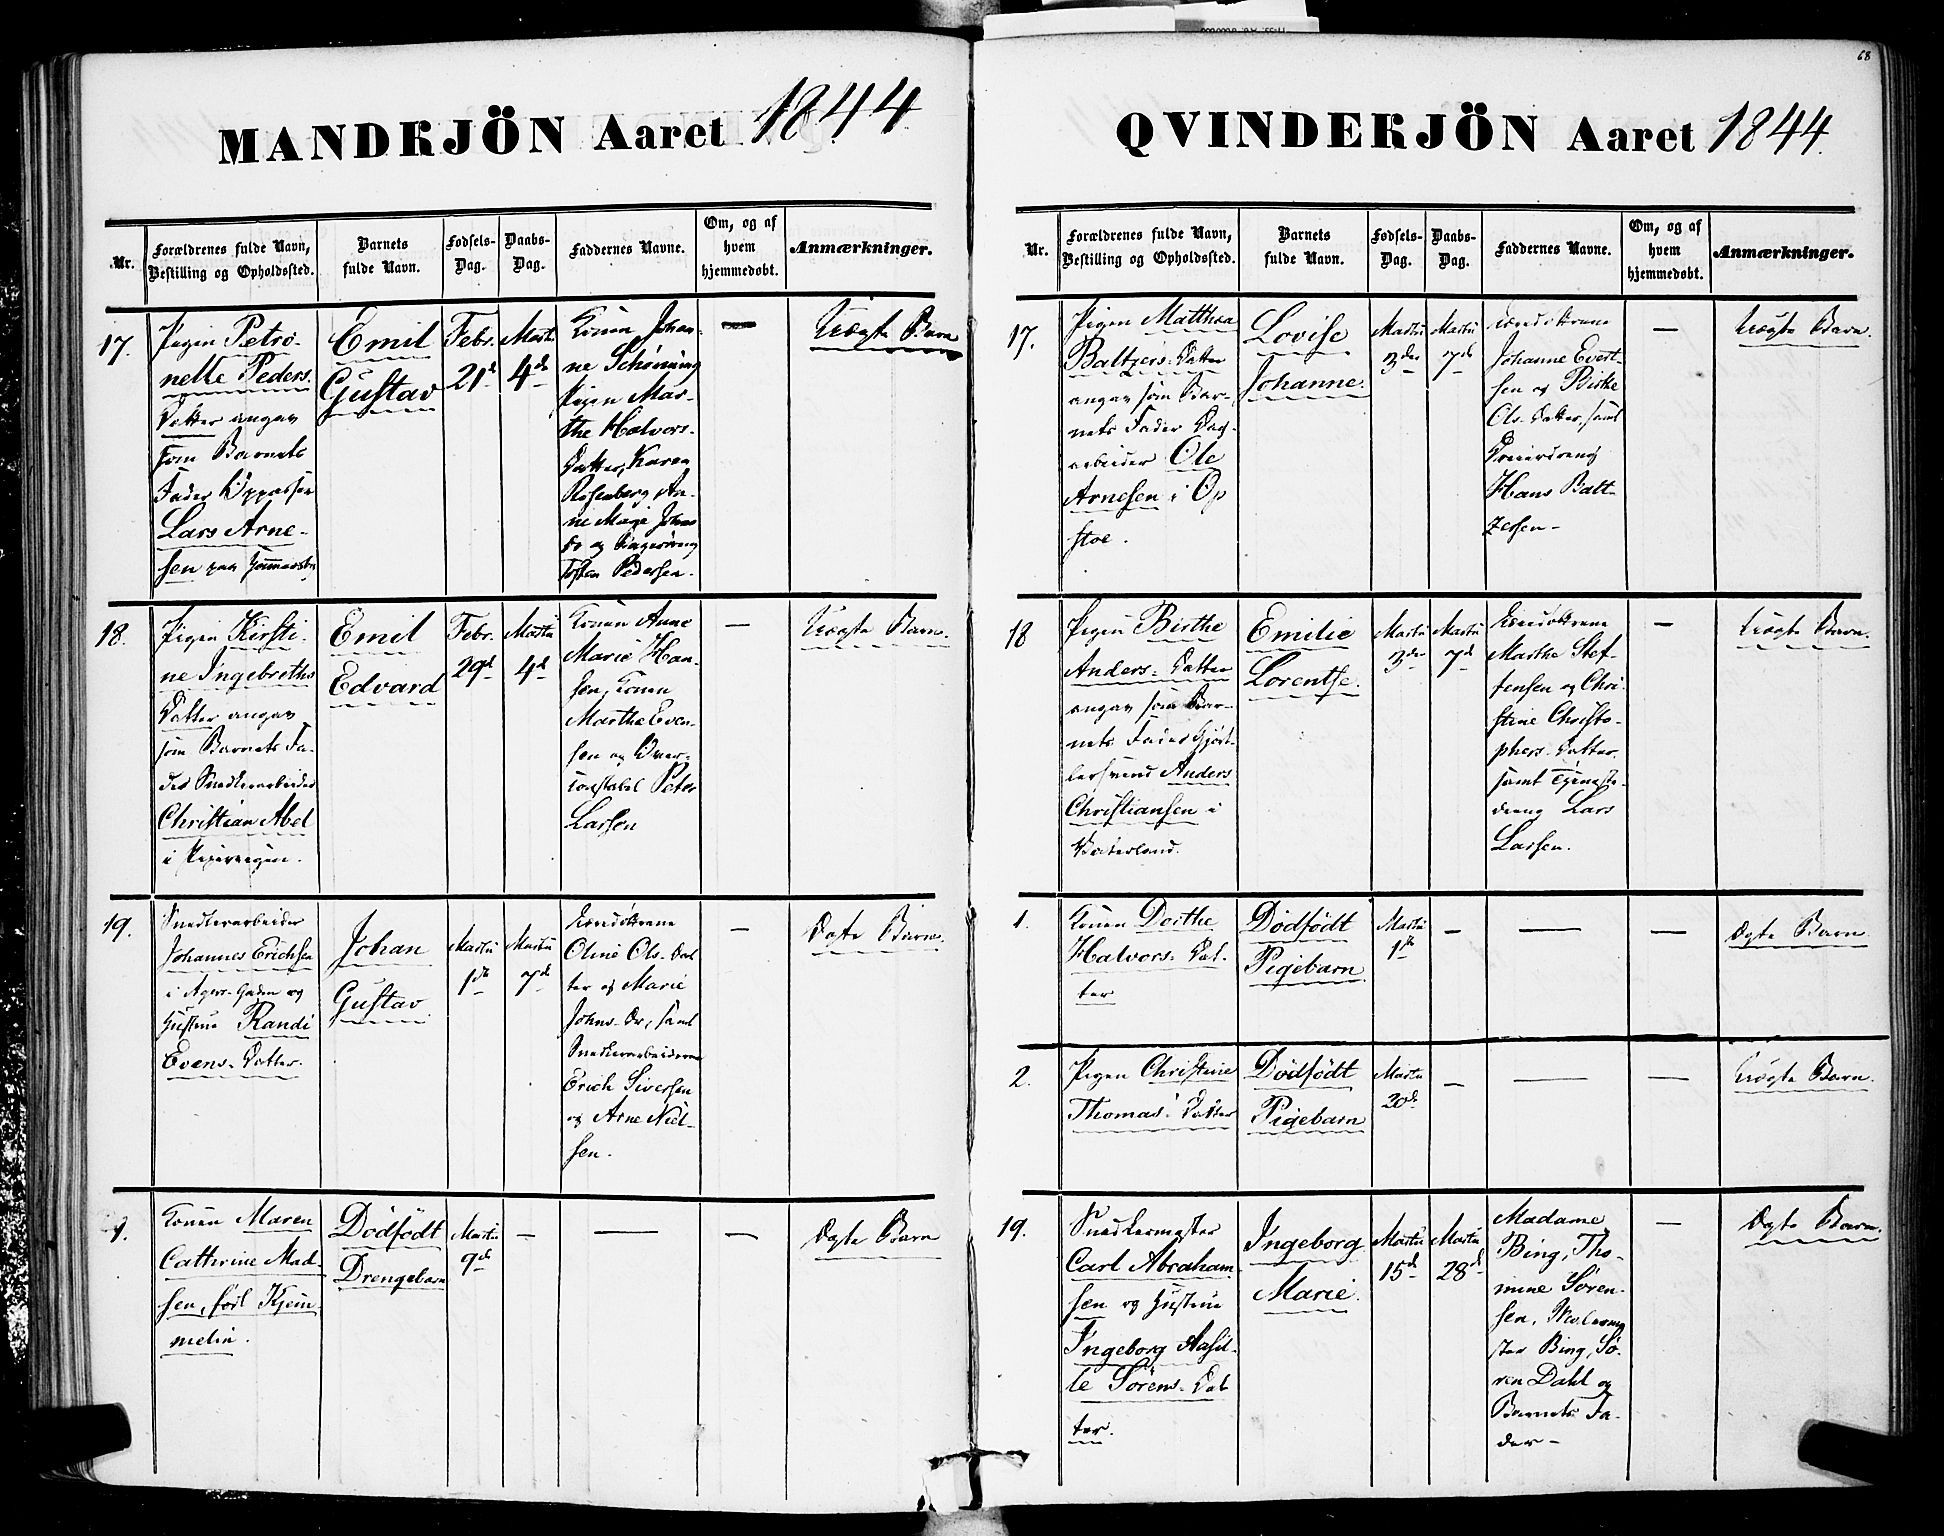 68
MANDKJÖN Aaret 1844
Nr.
Forældrenes fulde Navn,
Bestilling og Opholdssted.
Barnets
fulde Navn.
Fødsels-
Dag.
Daabs-
Dag.
Faddernes Navne.
Om, og af
hvem
hjemmedøbt.
Anmærkninger.
17.
Pigen Petro-
nelle Peders.
Datter angav
som Barnets
Fader
Lars Arne-
sen paa
Emil
Gustav
Febr.
21d
Martii
4de
Konen Johan-
ne Schønning
Pigen Mar-
the Halvors-
Datter, Karen
Rosenberg, An-
ne Marie
og
Pedersen.
—
Uægte Barn
18.
Pigen Kirsti-
ne Ingebreths
Datter angav
som Barnets Fa-
der Snedkerarbeider
Christian Abel
i Pipervigen.
Emil
Edvard
Febr.
29d
Martii
4d
Konen Anne
Marie Han-
sen, Konen
Marthe Even-
sen og Over-
konstabel Peter
Larsen
—
Uægte Barn.
19.
Snedkerarbeider
Johannes Erichsen
i Agers-Gaden og
Hustrue Randi
Evens-Datter.
Johan
Gustav
Martii
1ste
Martii
7d
Oline Ols-Dat
ter og Marie
Johns-Dr, samt
Snedkerarbeiderne
Erich Siversen
og Arne Niel-
sen.
—
Ægte Barn.
1.
Konen Maren
Cathrine Mad-
sen, født Kjem-
melin.
Dödfödt
Drengebarn
Martii
9de
—
—
—
Ægte Barn
QVINDEKJÖN Aaret 1844.
Nr.
Forældrenes fulde Navn,
Bestilling og Opholdssted.
Barnets
fulde Navn.
Fødsels-
Dag.
Daabs-
Dag.
Faddernes Navne.
Om, og af
hvem
hjemmedøbt.
Anmærkninger.
17.
Pigen Matthea
Baltzers-Datter
angav som Bar-
nets Fader Dag-
arbeider Ole
Arnesen i Op
stoe.
Lovise
Johanne.
Martii
3die
Martii
7d
Johanne Evert-
sen og Birthe
Ols-Datter, samt
Hans Balt-
zersen-
—
Uægte Barn.
18
Pigen Birthe
Anders-Datter
angav som Bar-
nets Fader Gjört-
lersvend Anders
Christiansen i
Vaterland.
Emilie
Lorentse.
Martii
3die
Martii
7d
Marthe Stef-
fensen og Chri-
stine Christo-
phers-Datter.
samt Tjeneste-
dreng Lars
Larsen.
—
Uægte Barn.
1.
Konen Dorthe
Halvors-Dat-
ter
Dödfödt
Pigebarn
Martii
1ste
—
—
—
Ægte Barn.
2.
Pigen Christine
Thomas-Datter
Dödfödt
Pigebarn
Martii
20d
—
—
—
Uægte Barn.
19.
Snedkermester
Carl Abraham-
sen og Hustrue
Ingeborg Aasil-
le Sörens-Dat
ter.
Ingeborg
Marie.
Martii
15d
Martii
28d
Madame
Bing, Tho-
mine Sören-
sen,
ster Bing, Sö-
ren Dahl og
Barnets Fa-
der-
—
Ægte Barn.